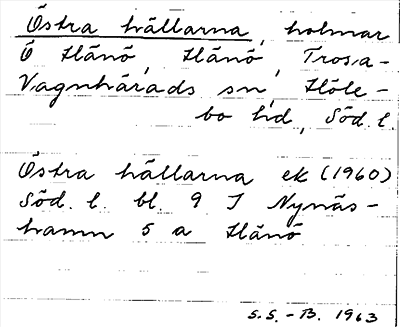 Östra hällarna, holmar
Ö Hånö, Hånö, Trosa-
Vagnhärads sn, Höle-
bo hd, Söd. l.
Östra hällarna ek (1960)
Söd. l. bl. 9 I Nynäs-
hamn 5 a Hånö
S.S. - B. 1963